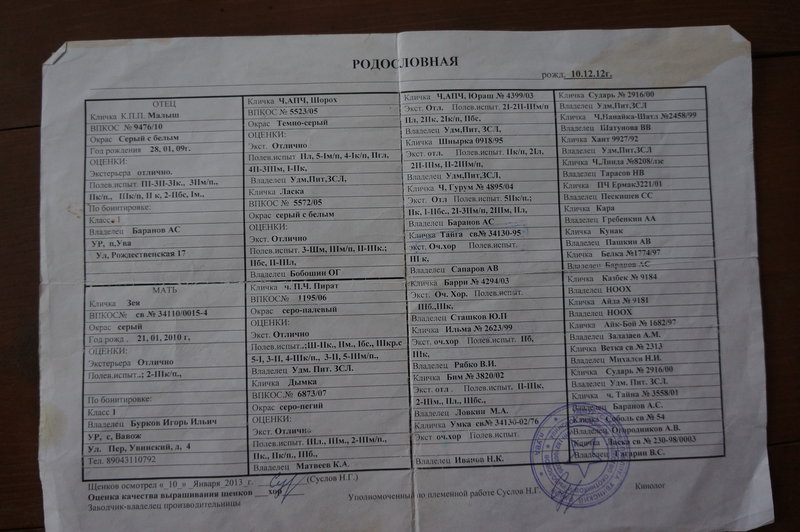 РОДОСЛОВНАЯ
рожд. 10.12.12г.
ОТЕЦ
Кличка К.П.П. Малыш
ВПКОС № 9476/10
Окрас Серый с белым
Год рождения 28, 01, 09г.
ОЦЕНКИ:
Экстерьера отлично.
Полев.испыт. III-3П-3Iк., 3Пм/п.,
Пк/п., IIIк/п, II к, 2-IIбс, Iм.,
По бонитировке:
Класс I
Владелец Баранов АС
УР, п,Ува
Ул, Рождественская 17
МАТЬ
Кличка Зея
ВПКОС.№ св.№ 34110/0015-4
Окрас серый
Год рожд. 21, 01, 2010 г,
ОЦЕНКИ:
Экстерьера Отлично
Полев.испыт.,; 2-IIIк/п.,
По бонитировке:
Класс I
Владелец Бурков Игорь Ильич
УР, с, Вавож
Ул. Пер, Увинский, д, 4
Тел. 89043110792
Кличка Ч,АПЧ, Шорох
ВПКОС № 5523/05
Окрас Темно-серый
ОЦЕНКИ:
Экст. Отлично
Полев.испыт Iil, 5-Iм/п, 4-Iк/п, IIгл,
4II-3IIм, I-IIк,
Владелец Удм,Пит,ЗСЛ,
Кличка .Ласка
ВПКОС № 5572/05
Окрас серый с белым
ОЦЕНКИ:
Экст. Отлично
Полев.испыт. 3-IIIм, IIIм/п, II-IIIк.;
IIбс, II-IIIл,
Владелец Бобошин ОГ
Кличка ч. П.Ч. Пират
ВПКОС.№ 1195/06
Окрас серо-палевый
ОЦЕНКИ:
Экст. Отлично
Полев.испыт.,:III-IIк., Iм., Iбс, IIIкр.с
5-I, 3-II, 4-IIIк/п., 3-II, 5-IIIм/п.,
Владелец Удм. Пит. ЗСЛ.
Кличка Дымка
ВПКОС.№ 6873/07
Окрас серо-пегий
ОЦЕНКИ:
Экст. Отлично
Полев.испыт. IIIл., IIIм., 2-IIIм/п.,
IIк., IIк/п., IIIб.,
Владелец Матвеев К.А.
Кличка Ч,АПЧ, Юраш № 4399/03
Экст. Отл. Полев.испыт. 2I-2II-IIIм/п
IIл, 2IIк, 2Iк/п, IIбс,
Владелец Удм,Пит, ЗСЛ,
Кличка Шнырка 0918/95
Экст. отл. Полев.испыт. IIк/п, 2Iл,
2II-IIIм, II-2IIIм/п,
Владелец Удм,Пит,ЗСЛ,
Кличка Ч, Гурум № 4895/04
Экст. Отл Полев.испыт. 5IIк/п.;
IIк, I-IIбс., 2I-3IIм/п, 2IIIм, IIл,
Владелец Баранов АС
Кличка Тайга св№ 34130-95
Экст. Оч.хор Полев.испыт.
III к,
Владелец Сапаров АВ
Кличка Барри № 4294/03
Экст. Оч. Хор. Полев.испыт.
IIIб.,IIIк,
Владелец Сташков Ю.П
Кличка Ильма № 2623/99
Экст. оч.хор Полев.испыт. IIб,
IIIк,
Владелец Рябко В.И.
Кличка Бим № 3820/02
Экст. отл Полев.испыт. II-IIIк,
2-IIIм., IIл., IIIбс.,
Владелец Ловкин М.А.
Кличка Умка св№ 34130-02/76
Экст оч.хор Полев.испыт.
Владелец Иванов Н.К.
Кличка Сударь № 2916/00
Владелец Удм,Пит,ЗСЛ
Кличка Ч,Нанайка-Шатл №2458/99
Владелец Шатунова ВВ
Кличка Хант 9927/92
Владелец Удм,Пит,ЗСЛ
Кличка Ч,Линда №8208/лзс
Владелец Тарасов НВ
Кличка ПЧ Ермак3221/01
Владелец Пескишев СС
Кличка Кара
Владелец Гребенкин АА
Кличка Кунак
Владелец Пашкин АВ
Кличка Белка №1774/97
Владелец Баранов АС
Кличка Казбек № 9184
Владелец НООХ
Кличка Айда № 9181
Владелец НООХ
Кличка Айк-Бой № 1682/97
Владелец Залазаев А.М.
Кличка Ветка св № 2313
Владелец Михалев Н.И.
Кличка Сударь № 2916/00
Владелец Удм. Пит. ЗСЛ
Кличка ч. Тайна № 3558/01
Владелец Баранов А.С.
Кличка Соболь св № 54
Владелец Огородников А.В.
Кличка Ласка св № 230-98/0003
Владелец Гагарин В.С.
Щенков осмотрел « 10 » Января 2013 г. (Суслов Н.Г.)
Оценка качества выращивания щенков хор Уполномоченный по племенной работе Суслов Н.Г Кинолог
Заводчик-владелец производительницы